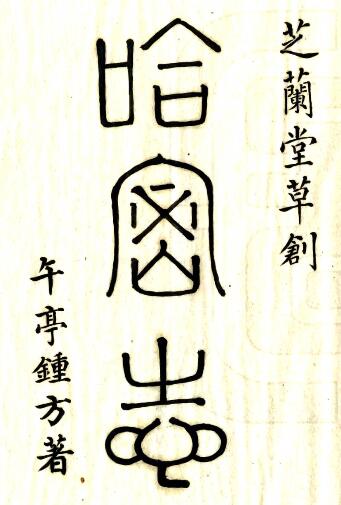 芝蘭堂草創
哈密志
午亭鍾方著